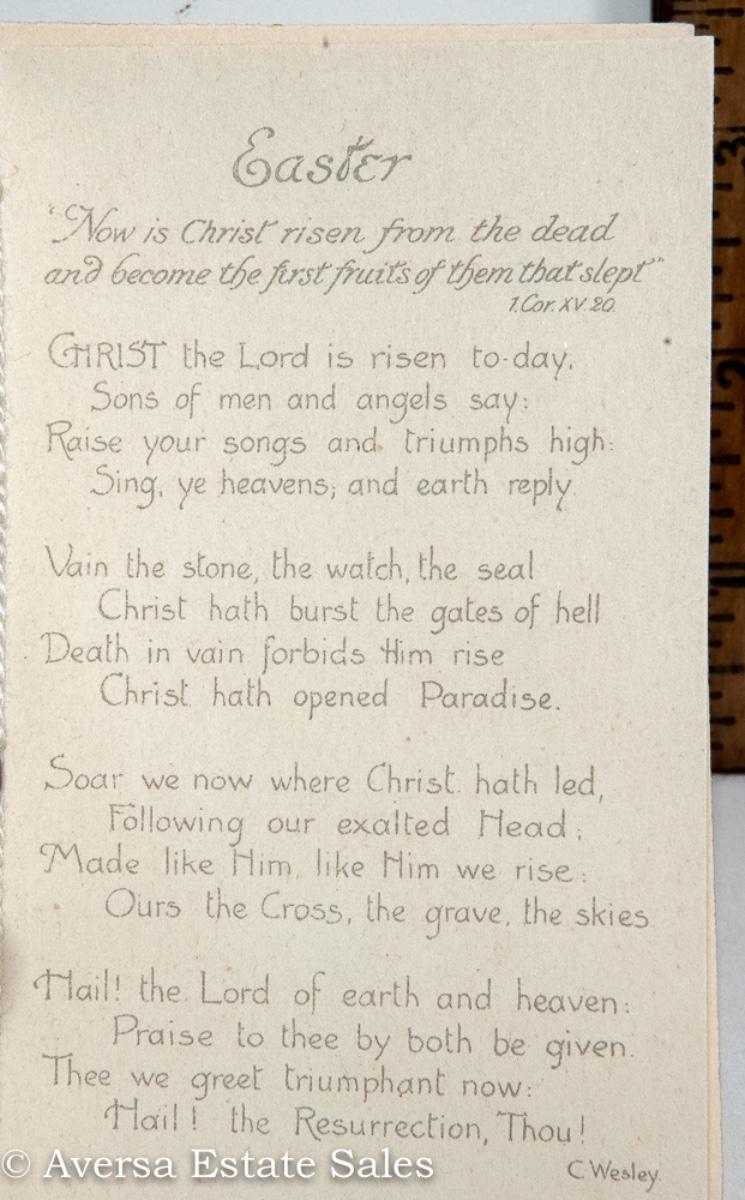 Easter
"Now is Christ risen from the dead
and become the first fruits of them that slept"
1. Cor. XV. 20.
CHRIST the Lord is risen to-day,
Sons of men and angels say:
Raise your songs and triumphs high:
Sing, ye heavens; and earth reply.
Vain the stone, the watch, the seal
Christ hath burst the gates of hell
Death in vain forbids Him rise
Christ hath opened Paradise.
Soar we now where Christ hath led,
Following our exalted Head;
Made like Him, like Him we rise:
Ours the Cross, the grave, the skies
Hail! the Lord of earth and heaven:
Praise to thee by both be given.
Thee we greet triumphant now:
Hail! the Resurrection, Thou!
C. Wesley.
© Aversa Estate Sales
3
2